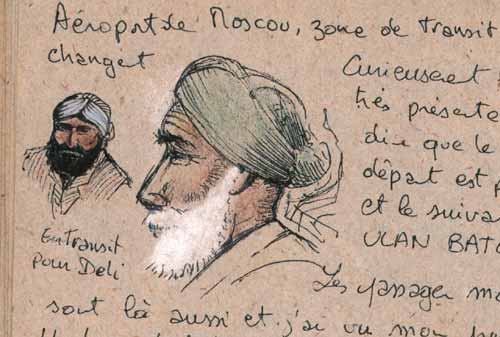 Aéroport de Moscou, zone de transit
très présente
dire que le
départ est p
et le suiva
ULAN BATO
En transit
pour Deli
Les passager
sont là aussi et j'ai vu mon